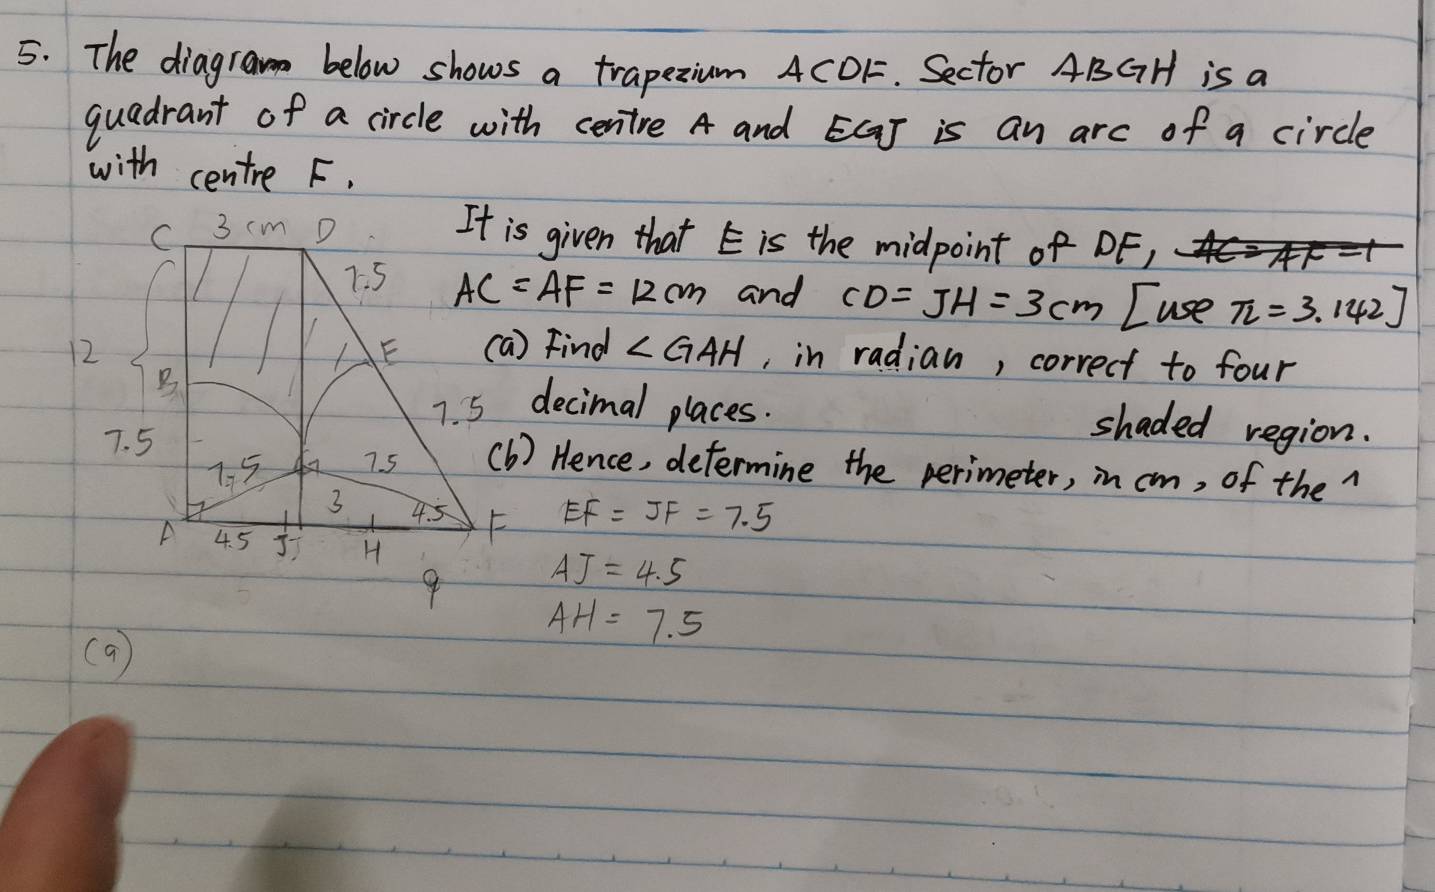 5. The diagram below shows a trapezium ACDF. Sector ABGH is a
quadrant of a circle with centre A and EGJ is an arc of a circle
with centre F.
It is given that E is the midpoint of DF, AC = AF = 1
AC = AF = 12 cm and CD = JH = 3 cm [use π = 3.142]
(a) Find ∠GAH, in radian, correct to four
decimal places.
shaded region.
(b) Hence, determine the perimeter, in cm, of the ^
EF = JF = 7.5
AJ = 4.5
AH = 7.5
C 3 cm D
7.5
12
E
B
7.5
7.5
7.5 G 7.5
3 4.5
A 4.5 J H F
9
(a)